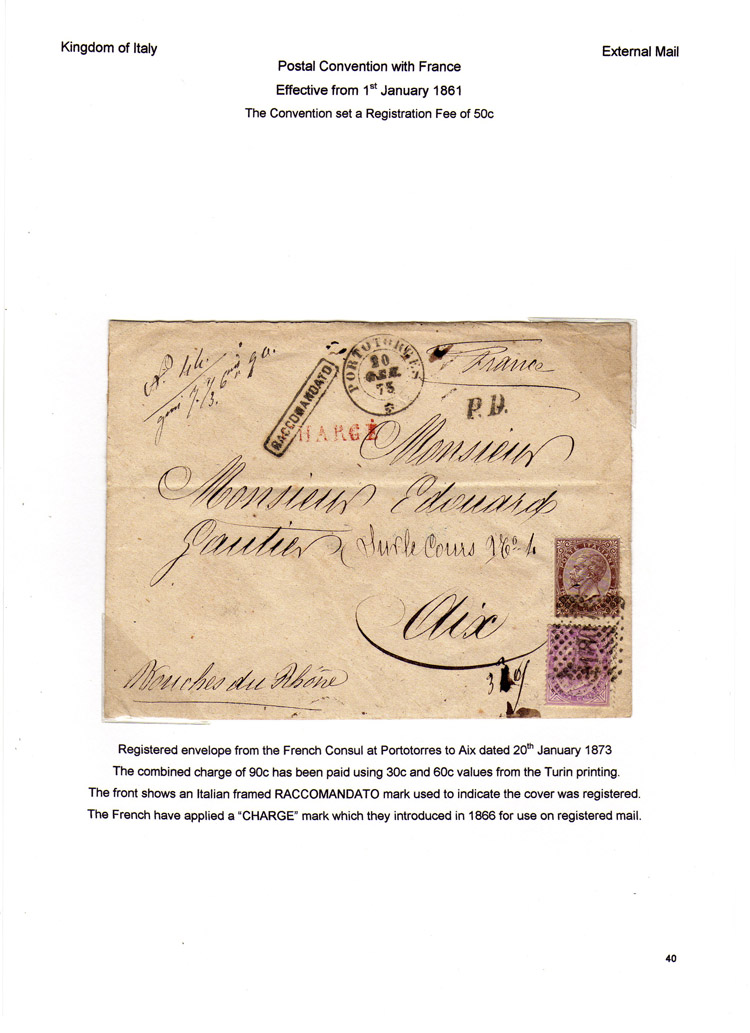 Kingdom of Italy
External Mail
Postal Convention with France
Effective from 1st January 1861
The Convention set a Registration Fee of 50c
PORTOTORRES
20
GEN
73
France
RACCOMANDATO
CHARGÉ
P.D.
Monsieur
Monsieur Edouard
Gautier Sur le Cours
Aix
Bouches du Rhône
Registered envelope from the French Consul at Portotorres to Aix dated 20th January 1873
The combined charge of 90c has been paid using 30c and 60c values from the Turin printing.
The front shows an Italian framed RACCOMANDATO mark used to indicate the cover was registered.
The French have applied a “CHARGE” mark which they introduced in 1866 for use on registered mail.
40